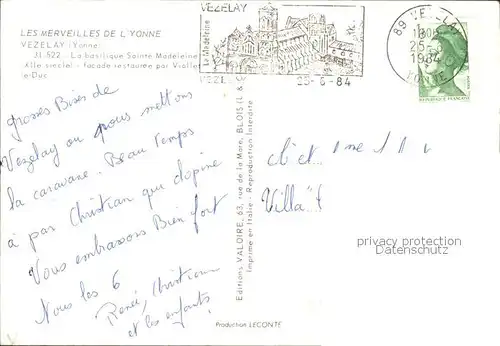 LES MERVEILLES DE L'YONNE
VEZELAY (Yonne)
JL 522 - La basilique Sainte Madeleine
XIIe siècle) - façade restaurée par Viollet
le-Duc
VEZELAY
La Madeleine
25-6-84
89 VEZELAY
18H
25-6
1984
YONNE
REPUBLIQUE FRANÇAISE
Grosses Bises de
Vezelay ou nous mettons
la caravane. Beau Temps
à par Christian qui
Vous embrassons Bien fort
Nous les 6
Renée, Christian
et les enfants
Editions VALOIRE, 63, rue de la Mare, BLOIS (L & C)
Imprimé en Italie - Reproduction Interdite
Villa
privacy protection
Datenschutz
Production LECONTE